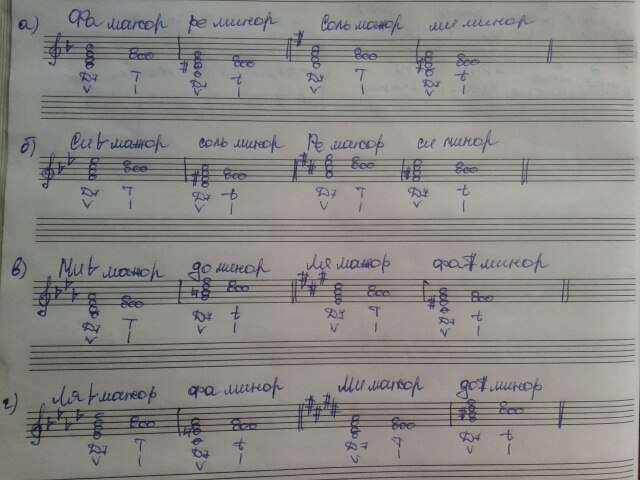 а) Фа мажор ре минор Соль мажор ми минор
D7 T D7 t D7 T D7 t
V I V I V I V I
б) Си♭ мажор соль минор Ре мажор си минор
D7 T D7 t D7 T D7 t
V I V I V I V I
в) Ми♭ мажор до минор Ля мажор фа# минор
D7 T D7 t D7 T D7 t
V I V I V I V I
г) Ля♭ мажор фа минор Ми мажор до# минор
D7 T D7 t D7 T D7 t
V I V I V I V I